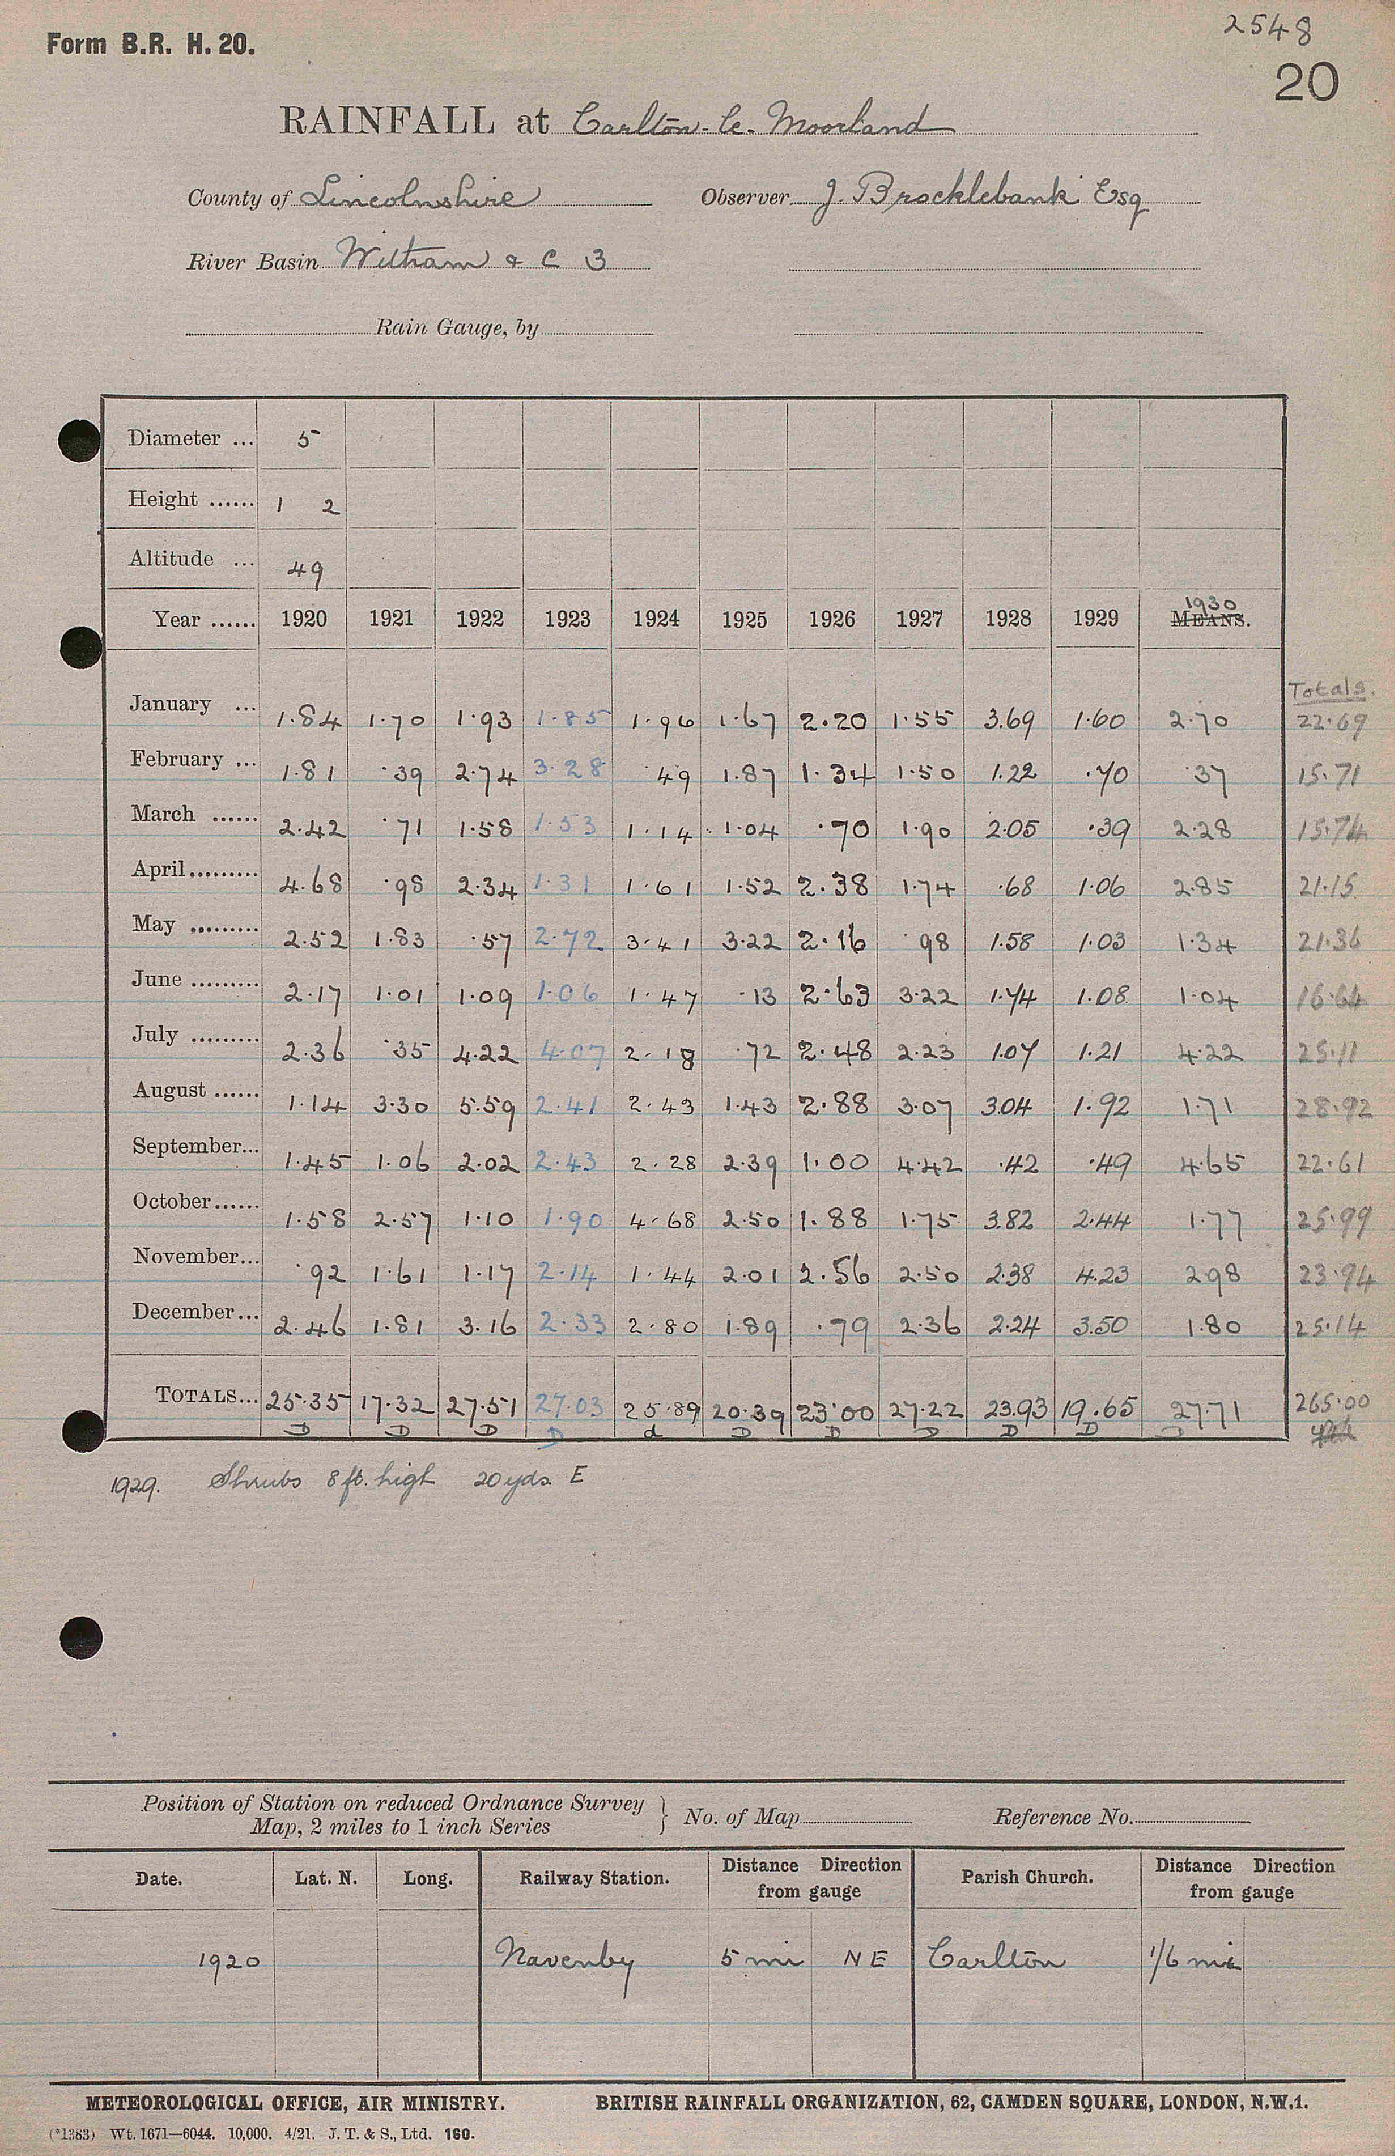 2548
Form B.R. H. 20.
20
RAINFALL at Carlton-le-Moorland
County of Lincolnshire Observer J. Brocklebank Esq
River Basin Witham & C 3
Rain Gauge, by
Diameter ... 5
Height ...... 1 2
Altitude ... 49
Year ...... 1920 1921 1922 1923 1924 1925 1926 1927 1928 1929 1930 MEANS.
Totals.
January ... 1.84 1.70 1.93 1.85 1.96 1.67 2.20 1.55 3.69 1.60 2.70 22.69
February ... 1.81 .39 2.74 3.28 .49 1.87 1.34 1.50 1.22 .70 .37 15.71
March ...... 2.42 .71 1.58 1.53 1.14 1.04 .70 1.90 2.05 .39 2.28 15.74
April......... 4.68 .98 2.34 1.31 1.61 1.52 2.38 1.74 .68 1.06 2.85 21.15
May ......... 2.52 1.83 .57 2.72 3.41 3.22 2.16 .98 1.58 1.03 1.34 21.36
June ......... 2.17 1.01 1.09 1.06 1.47 .13 2.63 3.22 1.74 1.08 1.04 16.64
July ......... 2.36 .35 4.22 4.07 2.18 .72 2.48 2.23 1.07 1.21 4.22 25.11
August ...... 1.14 3.30 5.59 2.41 2.43 1.43 2.88 3.07 3.04 1.92 1.71 28.92
September... 1.45 1.06 2.02 2.43 2.28 2.39 1.00 4.42 .42 .49 4.65 22.61
October...... 1.58 2.57 1.10 1.90 4.68 2.50 1.88 1.75 3.82 2.44 1.77 25.99
November... .92 1.61 1.17 2.14 1.44 2.01 2.56 2.50 2.38 4.23 2.98 23.94
December... 2.46 1.81 3.16 2.33 2.80 1.89 .79 2.36 2.24 3.50 1.80 25.14
TOTALS... 25.35 17.32 27.51 27.03 25.89 20.39 23.00 27.22 23.93 19.65 27.71 265.00
D D D D d D D D D D D
1929. Shrubs 8 ft. high 20 yds E
Position of Station on reduced Ordnance Survey
Map, 2 miles to 1 inch Series } No. of Map Reference No.
Date. Lat. N. Long. Railway Station. Distance Direction from gauge Parish Church. Distance Direction from gauge
1920 Navenby 5 mi NE Carlton 1/6 mi
METEOROLOGICAL OFFICE, AIR MINISTRY. BRITISH RAINFALL ORGANIZATION, 62, CAMDEN SQUARE, LONDON, N.W.1.
(*1383) Wt. 1671—6044. 10,000. 4/21. J. T. & S., Ltd. 160.